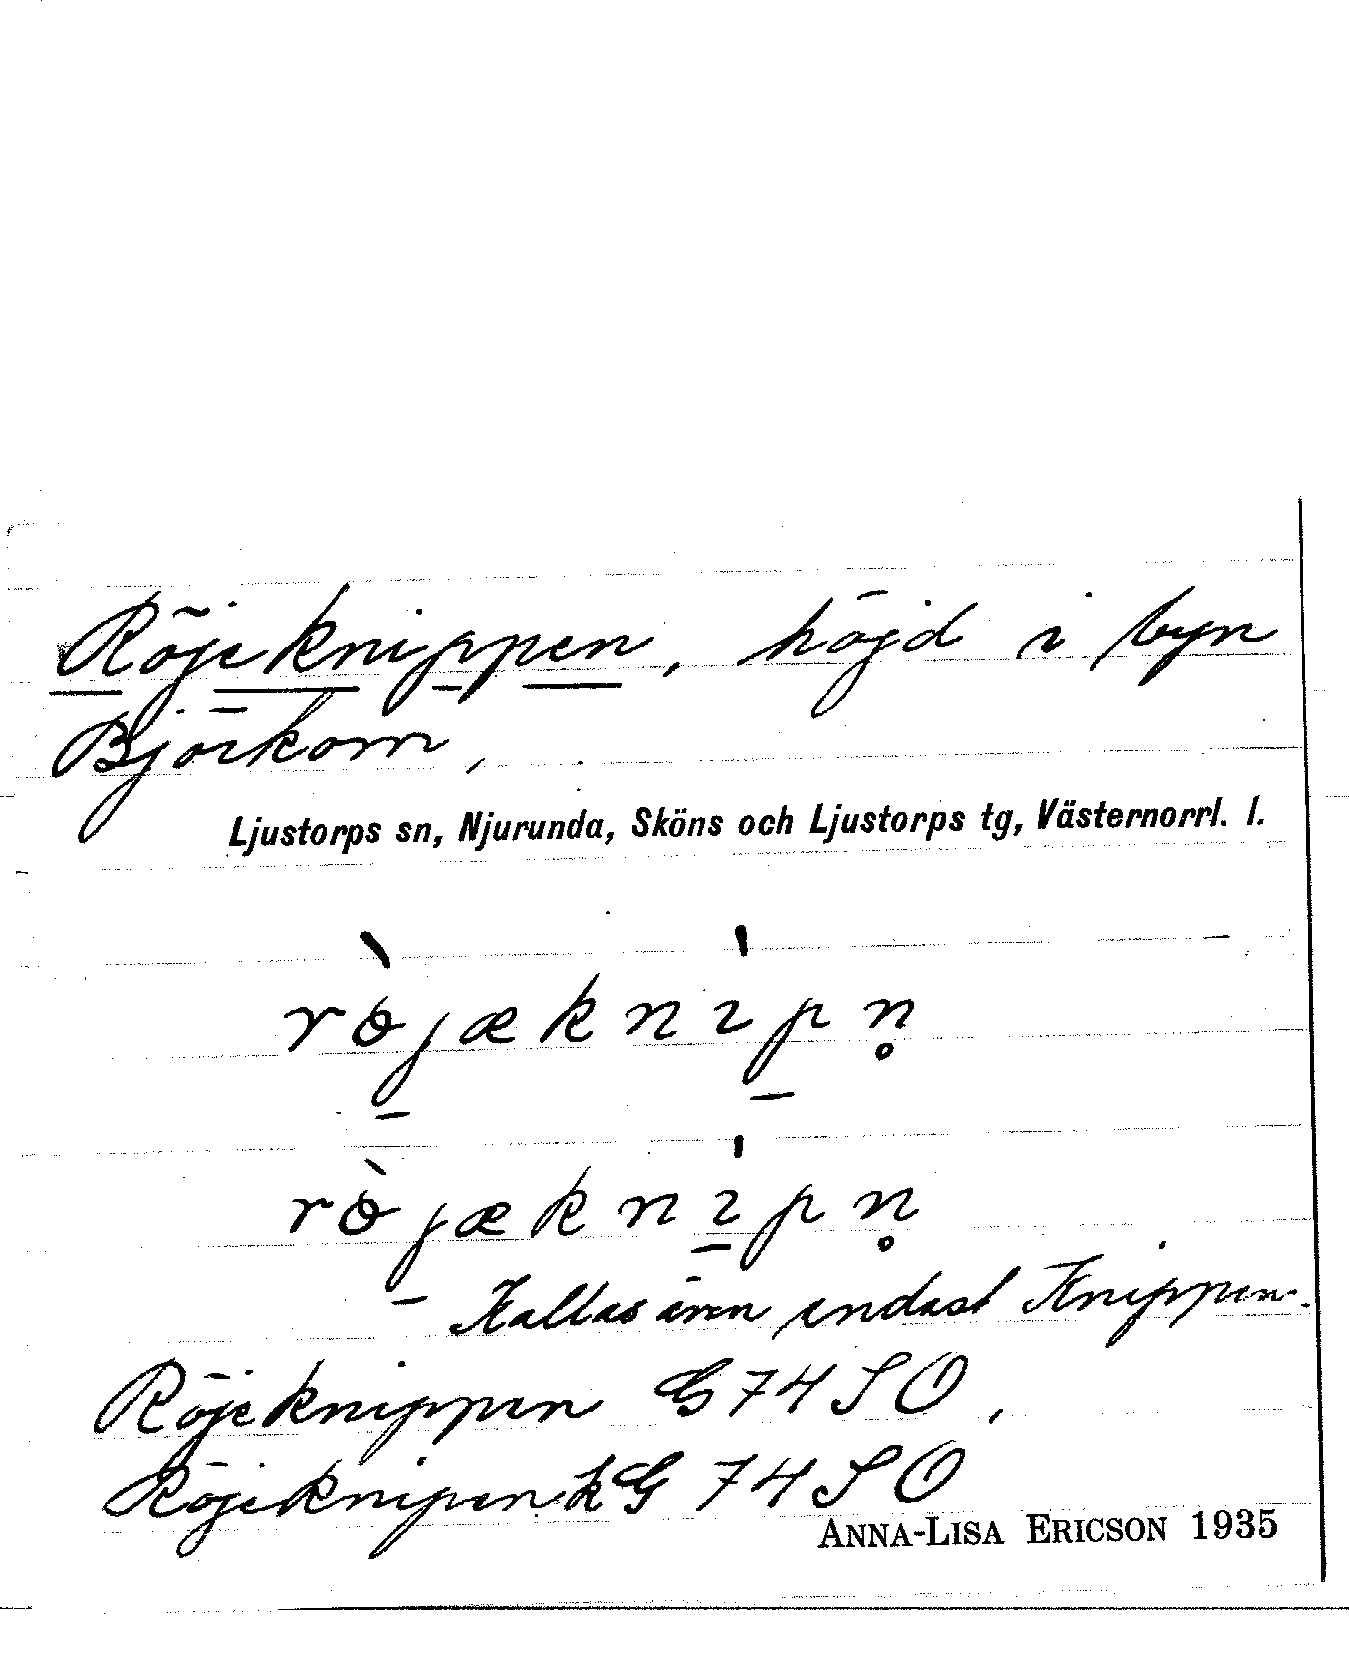 Röjeknippen, höjd i byn
Björkom,
Ljustorps sn, Njurunda, Sköns och Ljustorps tg, Västernorrl. l.
rɵ̀jæknɪ́pn̥
rɵ̀jæknɪ́pn̥
Kallas även endast Knippen.
Röjeknippen G74SO,
Röjeknipen kG 74SO
ANNA-LISA ERICSON 1935